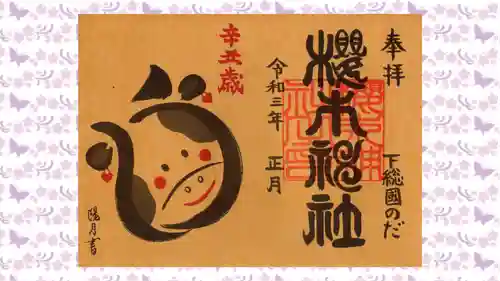 奉拝
下総國のだ
櫻木神社
令和三年
正月
辛丑歳
陽月書